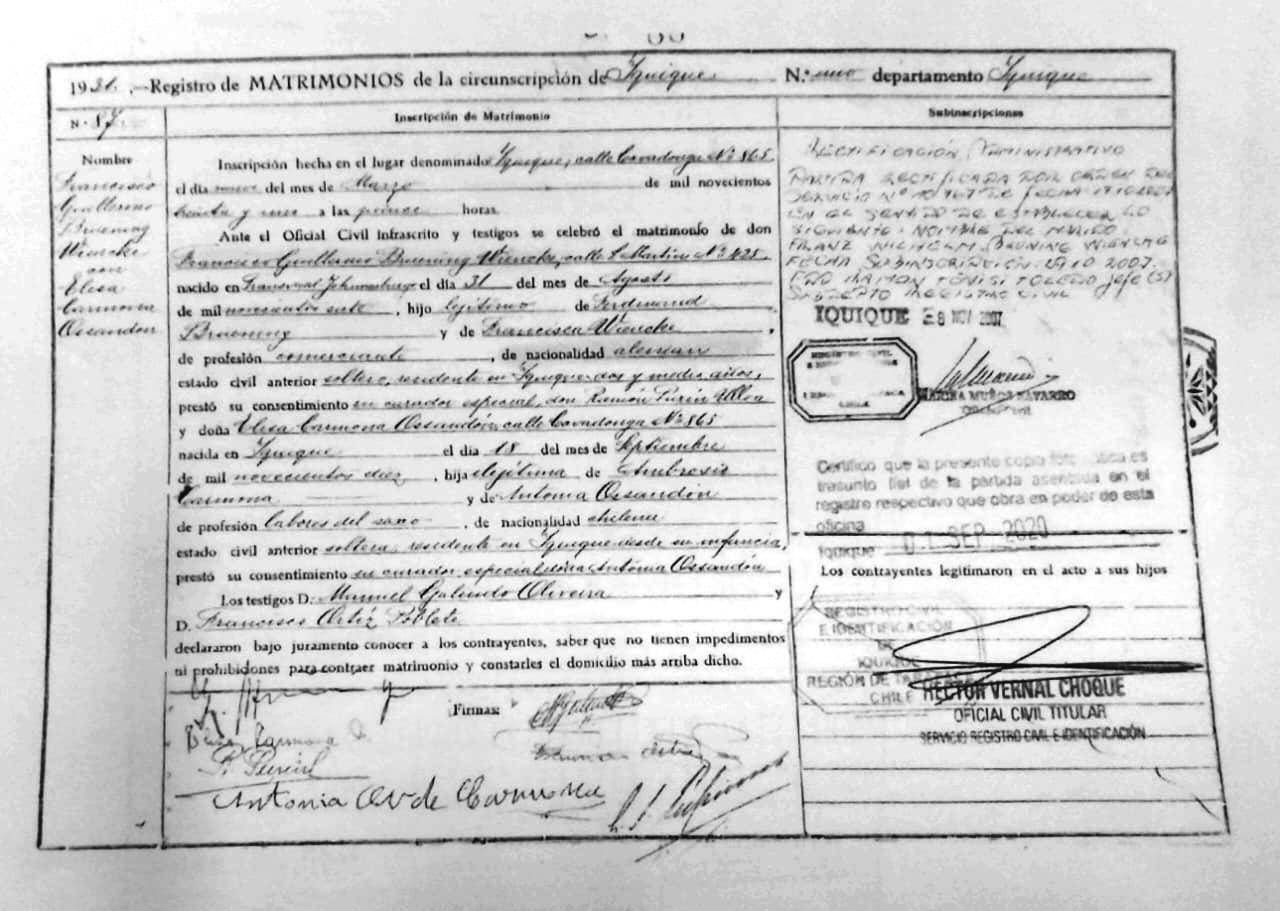 1931.—Registro de MATRIMONIOS de la circunscripción de Iquique N.º uno departamento Iquique
N.º 87
Inscripción de Matrimonio
Subinscripciones
Nombre
Francisco
Guillermo
Bruening
Wiencke
con
Elisa
Carmona
Ossandon
Inscripción hecha en el lugar denominado Iquique, calle Covadonga Nº 865
el día nueve del mes de Marzo de mil novecientos
treinta y uno a las quince horas.
Ante el Oficial Civil infrascrito y testigos se celebró el matrimonio de don
Francisco Guillermo Bruening Wiencke, calle S. Martin Nº 1425
nacido en Transvaal Johannesburg el día 31 del mes de Agosto
de mil novecientos siete, hijo legítimo de Ferdinand
Bruening y de Francisca Wiencke,
de profesión comerciante, de nacionalidad alemán
estado civil anterior soltero, residente en Iquique dos y medio años,
prestó su consentimiento su curador especial, don Ramón Ulloa
y doña Elisa Carmona Ossandón, calle Covadonga Nº 865
nacida en Iquique el día 18 del mes de Septiembre
de mil novecientos diez, hija legítima de Ambrosio
Carmona y de Antonia Ossandón
de profesión labores del sexo, de nacionalidad chilena
estado civil anterior soltera, residente en Iquique desde su infancia,
prestó su consentimiento su curador especial doña Antonia Ossandón
Los testigos D. Manuel Galindo Oliveira y
D. Francisco Ortiz Poblete
declararon bajo juramento conocer a los contrayentes, saber que no tienen impedimentos
ni prohibiciones para contraer matrimonio y constarles el domicilio más arriba dicho.
Firmas:
Elisa Carmona O.
Antonia O. v. de Carmona
RECTIFICACIÓN ADMINISTRATIVO
PARTIDA RECTIFICADA POR ORDEN DEL
SERVICIO Nº DE FECHA
EN EL SENTIDO DE ESTABLECER LO
SIGUIENTE: NOMBRE DEL MARIDO
FRANZ WILHELM BRUNING WIENCKE
FECHA SUBINSCRIPCIÓN 2007.
FDO RAMON TOLEDO Jefe (S)
SUBDEPTO REGISTRO CIVIL
IQUIQUE 28 NOV 2007
MARINA MUÑOZ NAVARRO
Certifico que la presente copia fotostática es
trasunto fiel de la partida asentada en el
registro respectivo que obra en poder de esta
oficina
Iquique 01 SEP 2020
Los contrayentes legitimaron en el acto a sus hijos
REGISTRO CIVIL
E IDENTIFICACIÓN
DE
IQUIQUE
REGIÓN DE TARAPACÁ
CHILE
HECTOR VERNAL CHOQUE
OFICIAL CIVIL TITULAR
SERVICIO REGISTRO CIVIL E IDENTIFICACIÓN